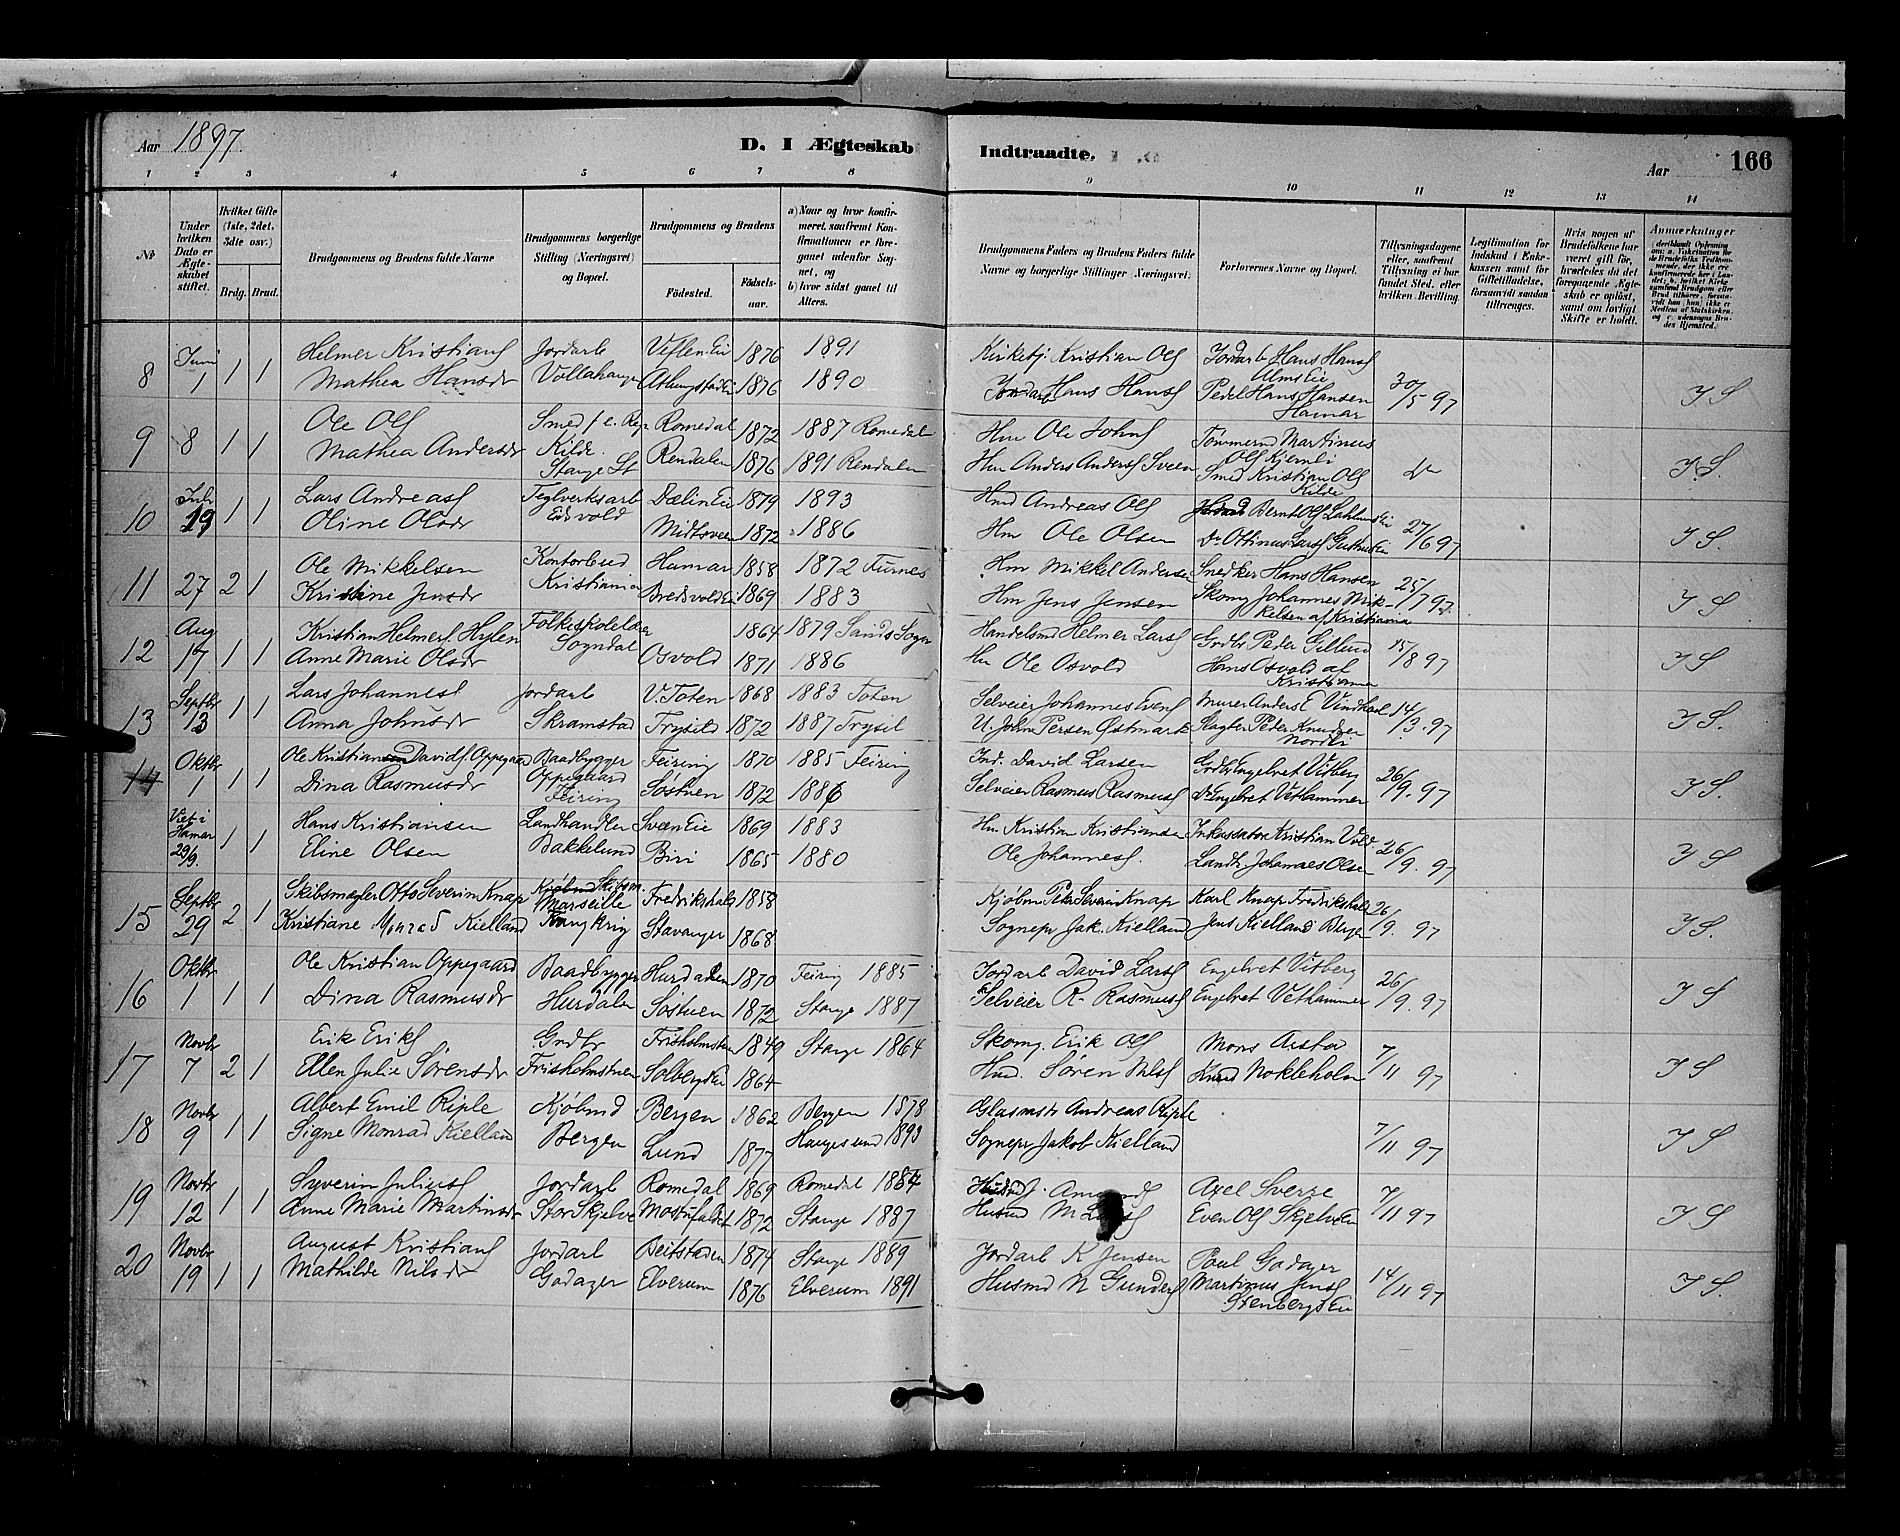 Aar 1897. D. I Ægteskab Indtraadte. Aar 166
1 2 3 4 5 6 7 8 9 10 11 12 13 14
№
Under hvilken Dato er Ægteskabet stiftet.
Hvilket Gifte (1ste, 2det, 3dte osv.)
Brdg. Brud.
Brudgommens og Brudens fulde Navne
Brudgommens borgerlige Stilling (Næringsvei) og Bopæl.
Brudgommens og Brudens
Fødested. Fødselsaar.
a) Naar og hvor konfirmeret, saafremt Konfirmationen er foregaaet udenfor Sognet, og
b) hvor sidst gaaet til Alters.
Brudgommens Faders og Brudens Faders fulde Navne og borgerlige Stillinger (Næringsvei)
Forlovernes Navne og Bopæl.
Tillysningsdagene eller, saafremt Tillysning ei har fundet Sted, efter hvilken Bevilling.
Legitimation for Indskud i Enkekassen samt for Giftetilladelse, forsaavidt saadan tiltrænges.
Hvis nogen af Brudefolkene har været gift før, hvorledes da det foregaaende Ægteskab er opløst, samt om lovligt Skifte er holdt.
Anmærkninger
8 Juni 1 1 1 Helmer Kristians Jordarb Veflen Ei 1876 1891 Kirketj. Kristian Ols Jordarb Hans Hans
Mathea Hansdr Vollahaugen 1876 1890 Jordarb Hans Hans Alms Eie Pedel Hans Hansen Hamar 30/5 97 I S
9 8 1 1 Ole Ols Smed Romedal 1872 1887 Romedal Hm Ole Johns Tømmerm Martinus Ols Kjernli
Mathea Andersdr Kilde Stange St Rendalen 1876 1891 Rendalen Hm Anders Anders Sveen Smed Kristian Ols Kilde Do I S.
10 Juli 19 1 1 Lars Andreass Teglverksarb Dælin Ei 1879 1893 Hmd Andreas Ols Bernt Ols
Oline Olsdr Eidsvold Midtsveen 1872 1886 Hm Ole Olsen Do Ottinus Lars 27/6 97 I S.
11 27 2 1 Ole Mikkelsen Kontorbud Hamar 1858 1872 Furnes Hm Mikkel Andersen Snedker Hans Hansen
Kristine Jensdr Kristiania Bredsvold Ei 1869 1883 Hm Jens Jensen Skom Johannes Mikkelsen af Kristiania 25/7 97. I S
12 Aug 17 1 1 Kristian Helmers. Hylen Folkeskolelærer 1864 1879 Sands Sogn Handelsmd Helmer Lars Grdbr Peder Gillund
Anne Marie Olsdr Sogndal Osvold 1871 1886 Hm Ole Osvold Hans Osvold af Kristiania 15/8 97 I S
13 Septbr 13 1 1 Lars Johanness Jordarb V. Toten 1868 1883 Toten Selveier Johannes Evens Murer Anders E Vindhol
Anna Johnsdr Skramstad Trysild 1872 1887 Trysil U. John Persen Østmark Slagter Peder Knudsen Nordli 14/9. 97 I S.
14 Oktbr 1 1 1 Ole Kristian Davids. Oppegaard Baadbygger Feiring 1870 1885 Feiring Ind. David Larsen Grdbr Engebret Vitberg
Dina Rasmusdr Oppegaard Feiring Søstuen 1872 1886 Selveier Rasmus Rasmus Do Engebret Vethammer 26/9. 97 I S.
Viet i Hamar 29/9. 1 1 Hans Kristiansen Landhandler Svæen Eie 1869 1883 Hm Kristian Kristiansen Inkassator Kristian Vold
Eline Olsen Bakkelund Biri 1865 1880 Ole Johanness. Landh. Johannes Olsen 26/9. 97 I S
15 Septbr 29 2 1 Skibsmægler Otto Severin Knap Marseille Fredrikshald 1858 Kjøbm Peter Severin Knap Karl Knap Fredrikshald
Kristiane Monrad Kielland Frankrig Stavanger 1868 Sognepr Jak. Kielland Jens Kielland Bergen 26/9. 97 I S.
16 Oktbr 1 1 1 Ole Kristian Oppegaard Baadbygger Hurdalen 1870 Feiring 1885 Jordarb David Lars Engebret Vitberg
Dina Rasmusdr Hurdalen Søstuen 1872 Stange 1887 Selveier R. Rasmus Engebret Vethammer 26/9. 97 I S
17 Novbr 7 2 1 Erik Eriks Grdbr Frisholmstuen 1849 Stange 1864 Skomg. Erik Ols Mons Arstad
Ellen Julie Sørensdr Frisholmstuen Solberg Eie 1864 Hmd. Søren Nils Knud Nokleholm 7/11 97 I S
18 Novbr 9 1 1 Albert Emil Riple Kjøbmd Bergen 1862 Bergen 1878 Glasmstr Andreas Riple
Signe Monrad Kielland Bergen Lund 1877 Haugesund 1893 Sognepr Jakob Kielland 7/11 97 I S
19 Novbr 12 1 1 Syverin Julius Jordarb Romedal 1869 Romedal 1884 Axel Sverre
Anne Marie Martinsdr Stor Skjelve 1872 Stange 1887 Husmd M Even Ols Skjelve Ei 7/11 97 I S
20 Novbr 19 1 1 August Kristians Jordarb Beitstaden 1874 Stange 1889 Jordarb K Jensen Poul Godager
Mathilde Nilsdr Godager Elverum 1876 Elverum 1891 Husmd N Gunders Martinus Jens Stenbergs Ei 14/11 97 I S.